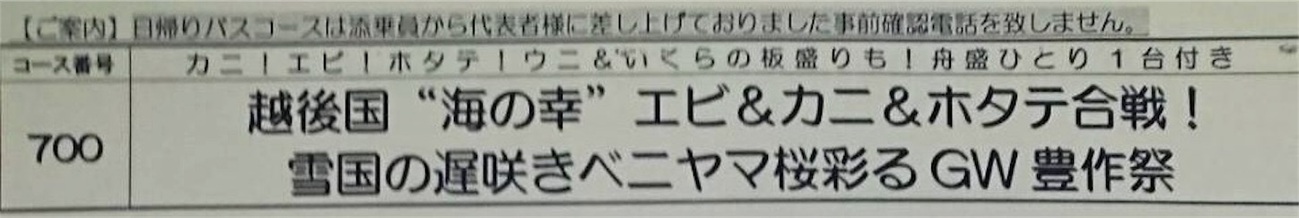 【ご案内】日帰りバスコースは添乗員から代表者様に差し上げておりました事前確認電話を致しません。
コース番号
カニ!エビ!ホタテ!ウニ&いくらの板盛りも!舟盛ひとり1台付き
700
越後国“海の幸”エビ&カニ&ホタテ合戦!
雪国の遅咲きベニヤマ桜彩るGW豊作祭